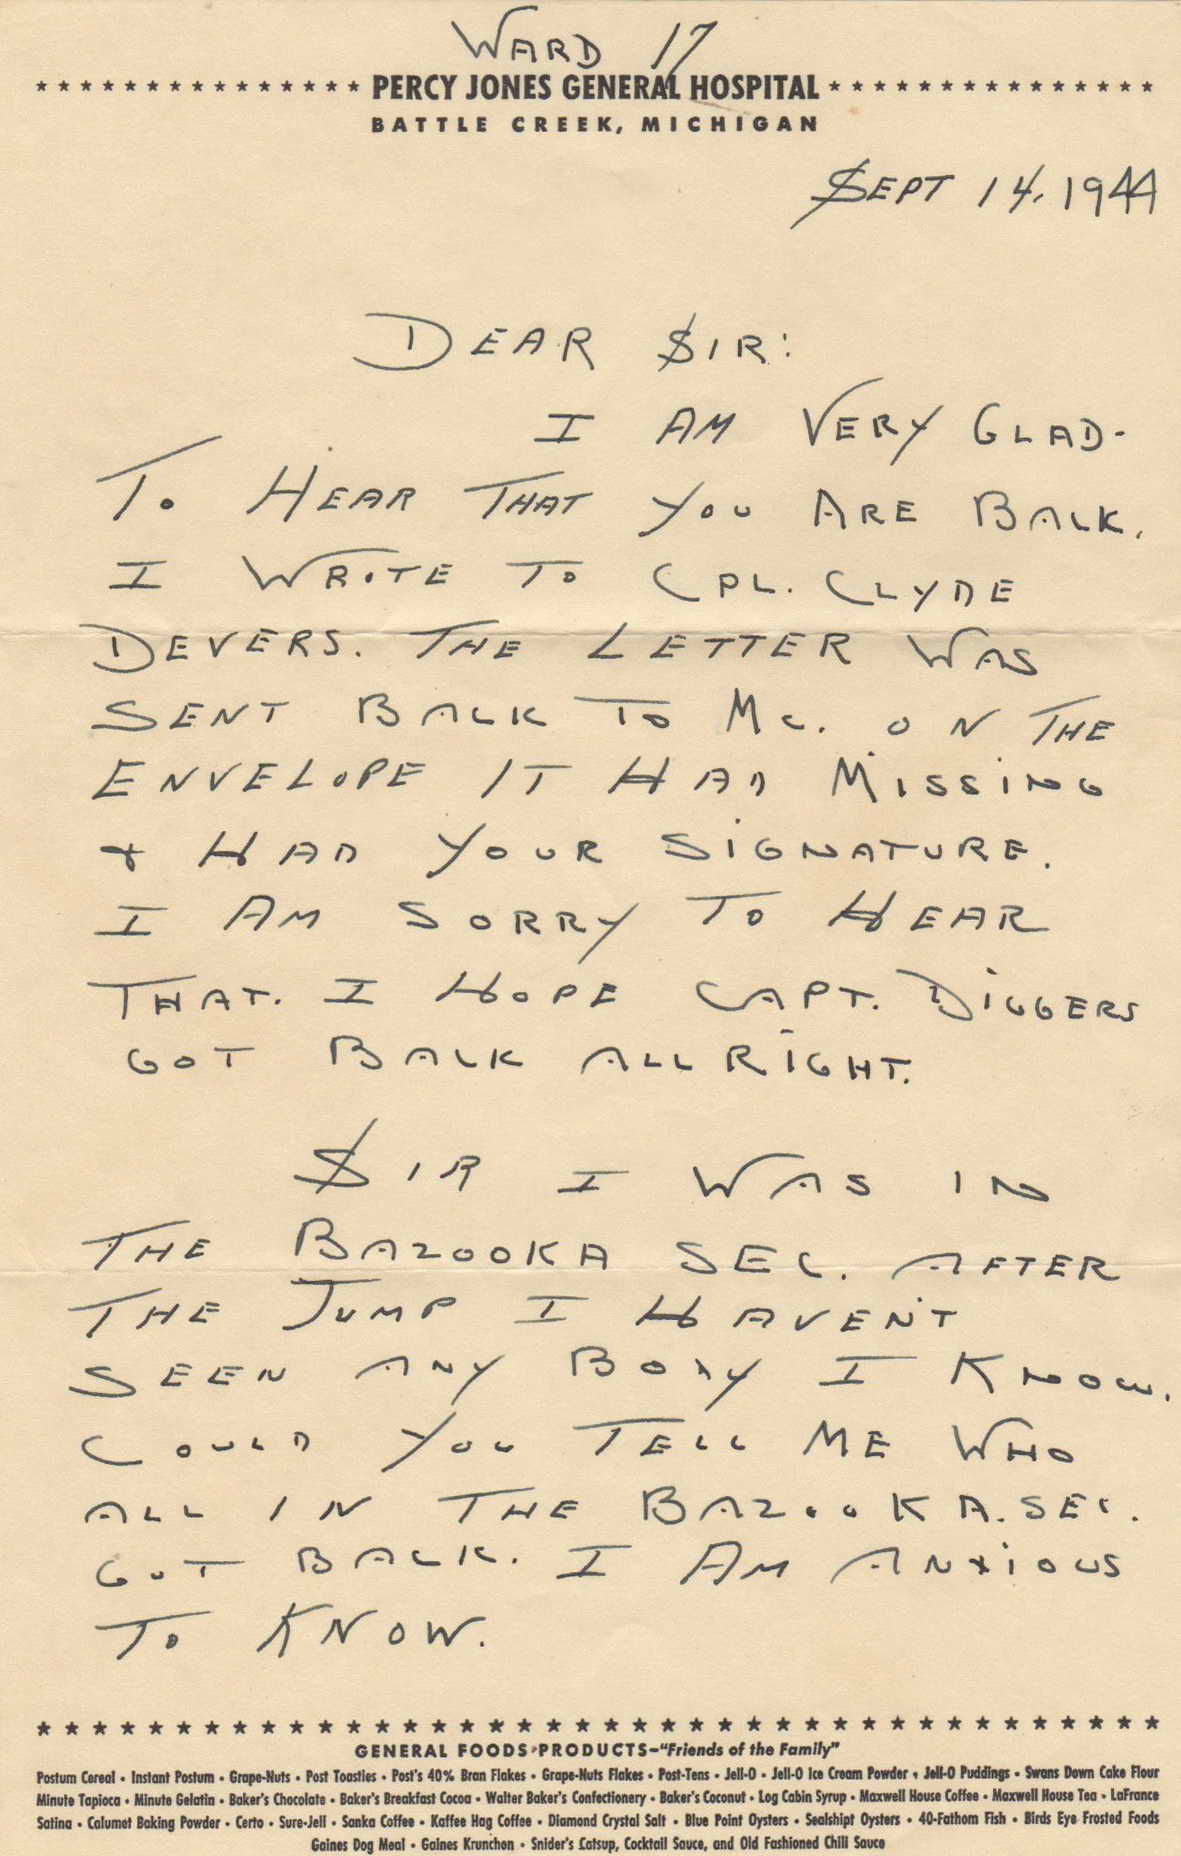 WARD 17
PERCY JONES GENERAL HOSPITAL
BATTLE CREEK, MICHIGAN
SEPT 14, 1944
DEAR SIR:
I AM VERY GLAD-
TO HEAR THAT YOU ARE BACK.
I WROTE TO CPL. CLYDE
DEVERS. THE LETTER WAS
SENT BACK TO ME. ON THE
ENVELOPE IT HAD MISSING
& HAD YOUR SIGNATURE.
I AM SORRY TO HEAR
THAT. I HOPE CAPT. DIGGERS
GOT BACK ALL RIGHT.
SIR I WAS IN
THE BAZOOKA SEC. AFTER
THE JUMP I HAVEN'T
SEEN ANY BODY I KNOW.
COULD YOU TELL ME WHO
ALL IN THE BAZOOKA. SEC.
GOT BACK. I AM ANXIOUS
TO KNOW.
GENERAL FOODS PRODUCTS—"Friends of the Family"
Postum Cereal • Instant Postum • Grape-Nuts • Post Toasties • Post's 40% Bran Flakes • Grape-Nuts Flakes • Post-Tens • Jell-O • Jell-O Ice Cream Powder • Jell-O Puddings • Swans Down Cake Flour
Minute Tapioca • Minute Gelatin • Baker's Chocolate • Baker's Breakfast Cocoa • Walter Baker's Confectionery • Baker's Coconut • Log Cabin Syrup • Maxwell House Coffee • Maxwell House Tea • LaFrance
Satina • Calumet Baking Powder • Certo • Sure-Jell • Sanka Coffee • Kaffee Hag Coffee • Diamond Crystal Salt • Blue Point Oysters • Sealshipt Oysters • 40-Fathom Fish • Birds Eye Frosted Foods
Gaines Dog Meal • Gaines Krunchon • Snider's Catsup, Cocktail Sauce, and Old Fashioned Chili Sauce